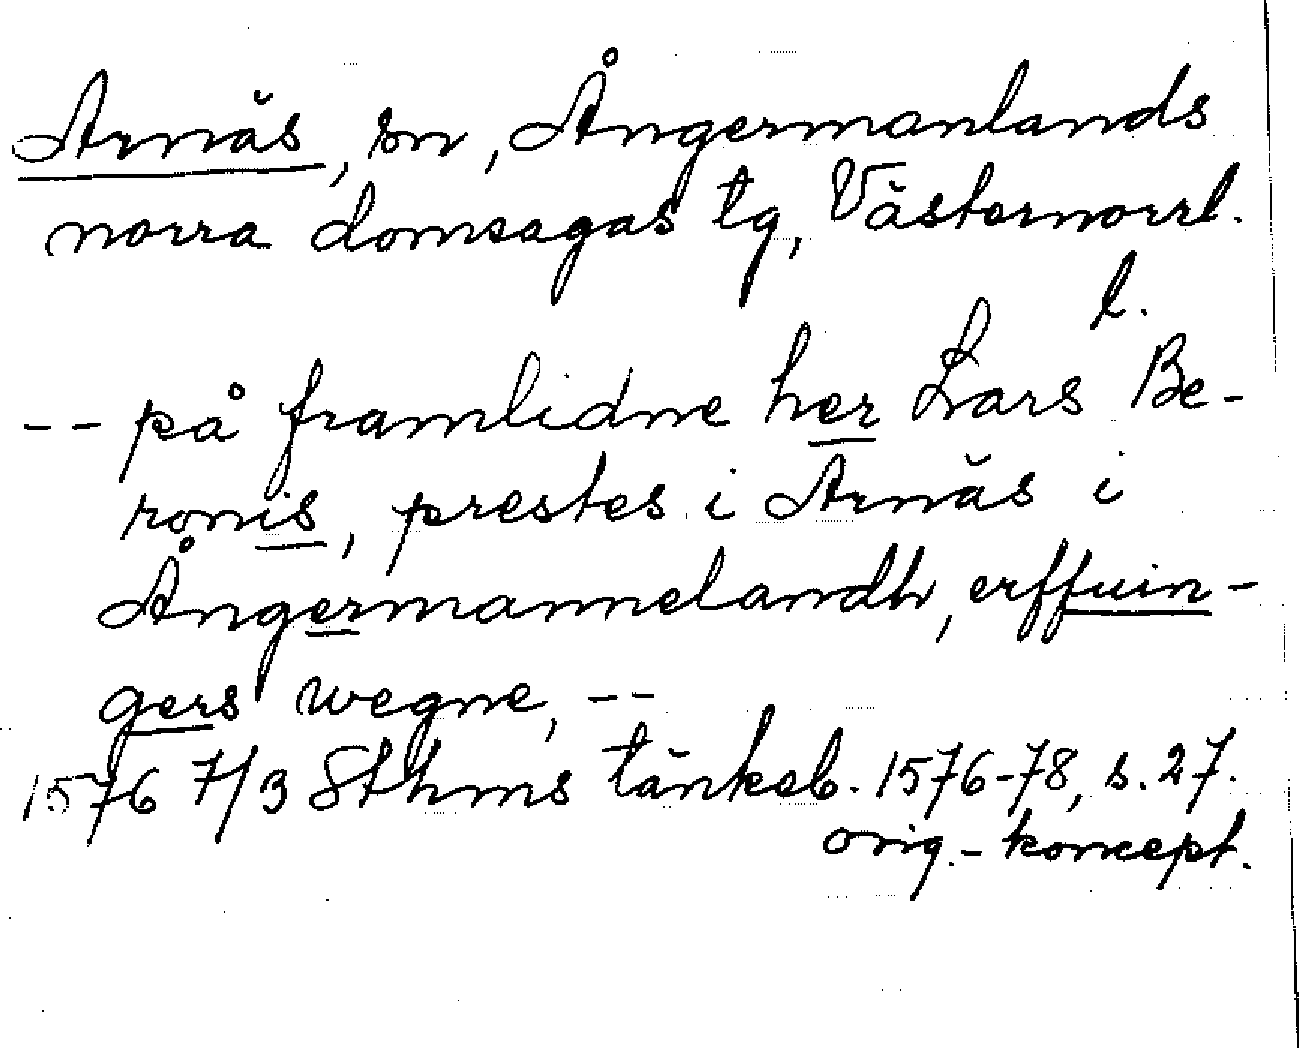 Arnäs, sn, Ångermanlands
norra domsagas tg, Västernorrl.
l.
-- på framlidne her Lars Be-
ronis, prestes i Arnäs i
Ångermannelandh, erffuin-
gers wegne, --
1576 7/3 Sthms tänkeb. 1576-78, s. 27.
orig.-koncept.